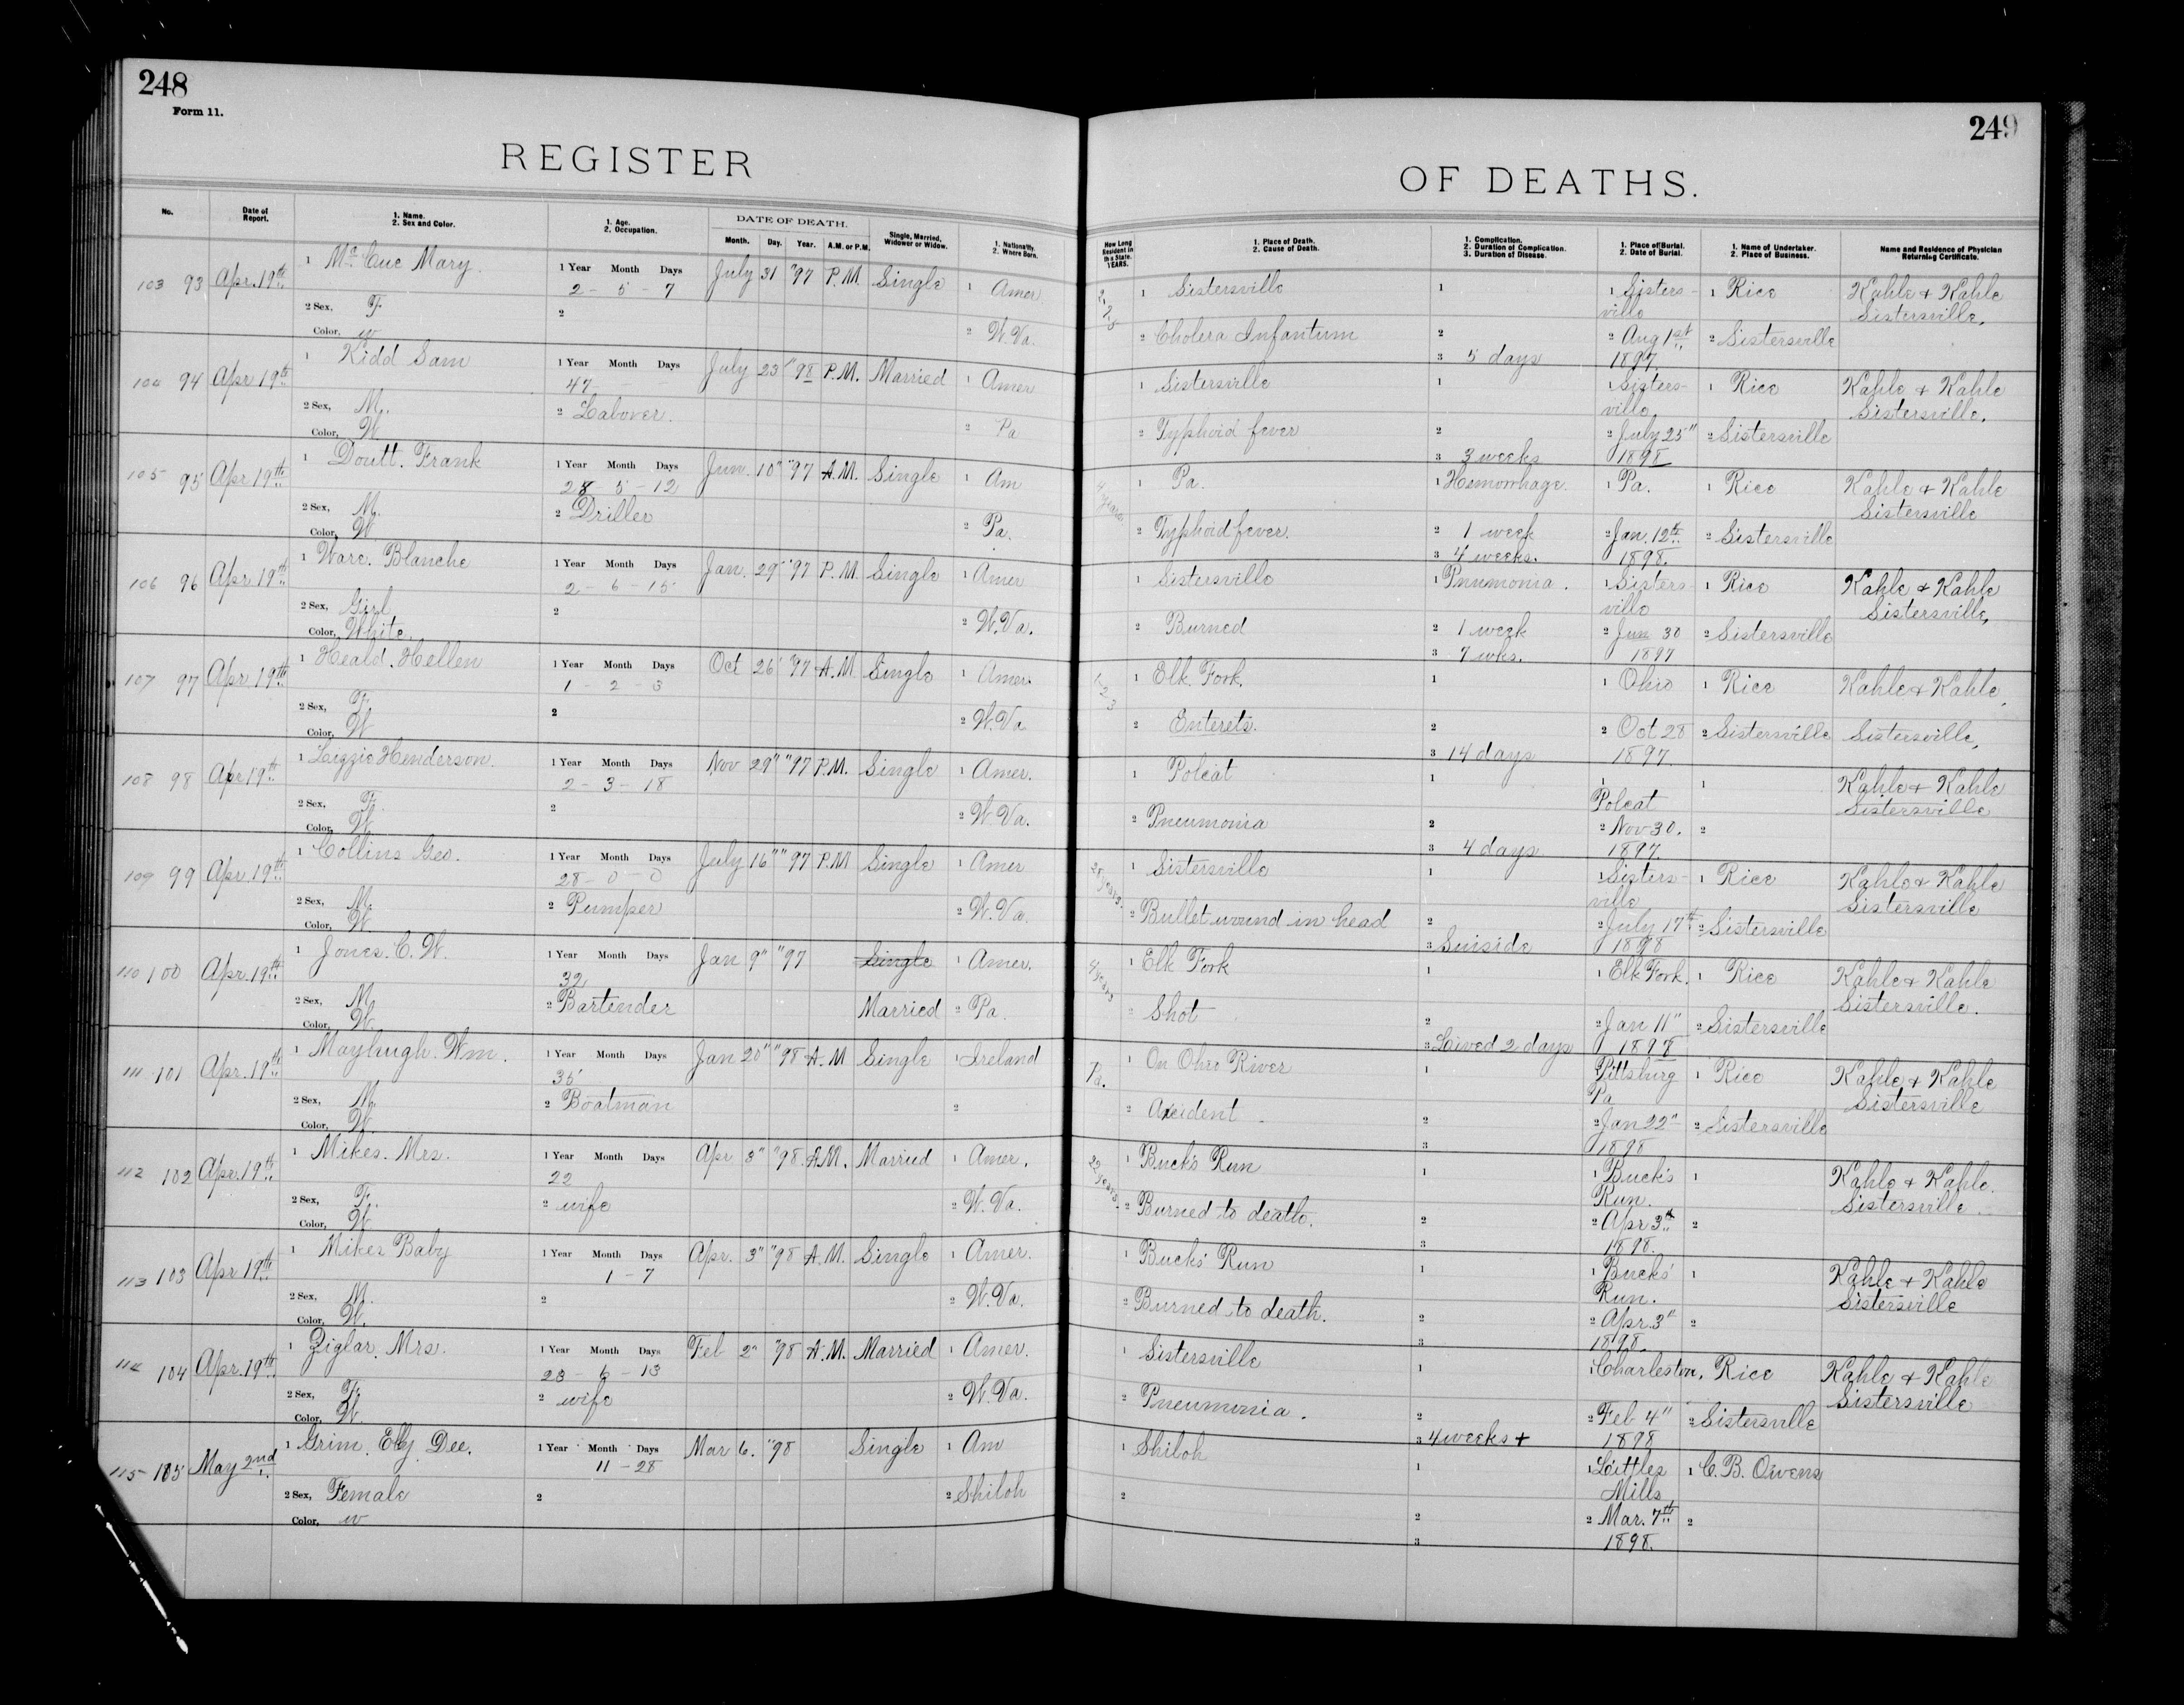 248
Form 11.
249
REGISTER OF DEATHS.
No. Date of Report. 1. Name. 2. Sex and Color. 1. Age. 2. Occupation. DATE OF DEATH. Month. Day. Year. A.M. or P.M. Single, Married, Widower or Widow. 1. Nationality. 2. Where Born. How Long Resident in this State. YEARS. 1. Place of Death. 2. Cause of Death. 1. Complication. 2. Duration of Complication. 3. Duration of Disease. 1. Place of Burial. 2. Date of Burial. 1. Name of Undertaker. 2. Place of Business. Name and Residence of Physician Returning Certificate.
103 93 Apr. 19th 1 McCue Mary. 1 Year Month Days July 31 "97 P.M. Single 1 Amer. 1 Sistersville 1 1 Sisters- 1 Rice Kahle & Kahle
2 - 5 - 7 ville Sistersville,
2 Sex, F. 2 2 W.Va. 2 Cholera Infantum 2 2 Aug 1st 2 Sistersville
Color, w 3 5 days 1897
104 94 Apr 19th 1 Kidd Sam 1 Year Month Days July 23 "98 P.M. Married 1 Amer 1 Sistersville 1 1 Sisters- 1 Rice Kahle & Kahle
47 ville, Sistersville,
2 Sex, M. 2 Laborer. 2 Pa 2 Typhoid fever 2 2 July 25" 2 Sistersville
Color, W 3 3 weeks 1898
105 95 Apr 19th 1 Doutt. Frank 1 Year Month Days Jun. 10" "97 A.M. Single 1 Am 4 years. 1 Pa. 1 Hemorrhage. 1 Pa. 1 Rice Kahle & Kahle
28 - 5 - 12 Sistersville
2 Sex, M. 2 Driller 2 Pa. 2 Typhoid fever. 2 1 week 2 Jan. 12th 2 Sistersville
Color, W 3 4 weeks. 1898.
106 96 Apr 19th 1 Ware. Blanche 1 Year Month Days Jan. 29" "97 P.M. Single 1 Amer 1 Sistersville 1 Pnumonia. 1 Sisters- 1 Rice Kahle & Kahle
2 - 6 - 15 ville Sistersville,
2 Sex, Girl 2 2 W.Va. 2 Burned 2 1 week 2 30 2 Sistersville
Color, White. 3 7 wks. 1897
107 97 Apr 19th 1 Heald. Hellen 1 Year Month Days Oct 26 "97 A.M. Single 1 Amer. 1 2 3 1 Elk Fork. 1 1 Ohio 1 Rice Kahle & Kahle,
1 - 2 - 3
2 Sex, F. 2 2 W.Va 2 Enterets. 2 2 Oct 28 2 Sistersville Sistersville,
Color, W 3 14 days 1897.
108 98 Apr 19th 1 Lizzie Henderson. 1 Year Month Days Nov 29" "97 P.M. Single 1 Amer. 1 Polcat 1 1 1 Kahle & Kahle
2 - 3 - 18 Polcat Sistersville
2 Sex, F. 2 2 W Va. 2 Pneumonia 2 2 Nov 30. 2
Color, W 3 4 days 1897.
109 99 Apr 19th 1 Collins Geo. 1 Year Month Days July 16" "97 P.M Single 1 Amer 28 years. 1 Sistersville 1 1 Sisters- 1 Rice Kahle & Kahle
28 - 0 - 0 ville Sistersville
2 Sex, M. 2 Pumper 2 W.Va. 2 Bullet wound in head 2 2 July 17th 2 Sistersville
Color, W 3 Suiside 1898
110 100 Apr. 19th 1 Jones. C. W. 1 Year Month Days Jan 9" "97 Single 1 Amer. 4 years 1 Elk Fork 1 1 Elk Fork. 1 Rice Kahle & Kahle
32 Sistersville.
2 Sex, M 2 Bartender Married 2 Pa. 2 Shot 2 2 Jan 11" 2 Sistersville
Color, W. 3 Lived 2 days 1898
111 101 Apr. 19th 1 Mayhugh. Wm. 1 Year Month Days Jan 20" "98 A.M Single 1 Ireland Pa. 1 On Ohio River 1 Pittsburg 1 Rice Kahle & Kahle
35 Pa Sistersville
2 Sex, M. 2 Boatman 2 2 Axident 2 2 Jan 22" 2 Sistersville
Color, W. 3 1898
112 102 Apr. 19th 1 Mikes. Mrs. 1 Year Month Days Apr 3" "98. A.M. Married 1 Amer. 22 years. 1 Buck's Run 1 1 Buck's 1 Kahle & Kahle.
22 Run. Sistersville.
2 Sex, F. 2 wife 2 W. Va. 2 Burned to death. 2 2 Apr 3th 2
Color, W 3 1898.
113 103 Apr 19th 1 Mikes Baby 1 Year Month Days Apr. 3" "98 A.M. Single 1 Amer. 1 Bucks' Run 1 1 Bucks' 1 Kahle & Kahle
1 - 7 Run. Sistersville
2 Sex, M. 2 2 W.Va. 2 Burned to death. 2 2 Apr. 3" 2
Color, W. 3 1898.
114 104 Apr. 19th 1 Ziglar. Mrs. 1 Year Month Days Feb 2" "98 A.M. Married 1 Amer. 1 Sistersville 1 1 Charleston, Rice Kahle & Kahle
23 - 6 - 13 Sistersville
2 Sex, F. 2 wife 2 W.Va. 2 Pneumonia. 2 2 Feb 4" 2 Sistersville
Color, W. 3 4 weeks + 1898
115 105 May 2nd 1 Grim. Dee. 1 Year Month Days Mar 6. "98 Single 1 Am 1 Shiloh 1 1 Littles 1 C. B. Owens
11 - 28 Mills
2 Sex, Female 2 2 Shiloh 2 2 2 Mar. 7th 2
Color, w 3 1898.